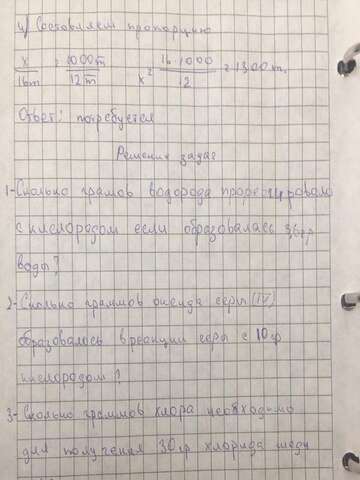 4) Составляем пропорцию
x/16т = 1000т/12т x = 16·1000/12 = 1300т.
Ответ: потребуется
Решение задач
1-Сколько грамов водорода прореагировало
с кислородом если образовалась 36гр
воды?
2-Сколько граммов оксида серы (IV)
образовалось в реакции серы с 10гр
кислородом?
3-Сколько граммов хлора необходимо
для получения 30гр хлорида меди